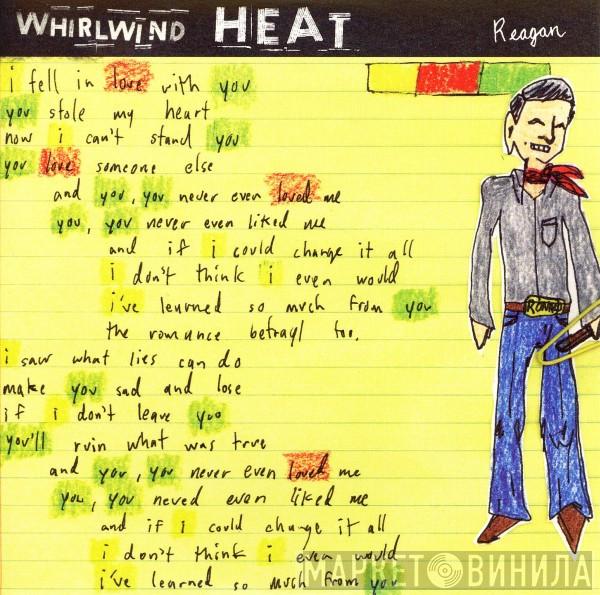 WHIRLWIND HEAT
Reagan
i fell in love with you
you stole my heart
now i can't stand you
you love someone else
and you, you never even loved me
you, you never even liked me
and if i could change it all
i don't think i even would
i've learned so much from you
the romance betrayl too.
i saw what lies can do
make you sad and lose
if i don't leave you
you'll ruin what was true
and you, you never even loved me
you, you neved even liked me
and if i could change it all
i don't think i even would
i've learned so much from you
RONALD
МАРКЕТ ВИНИЛА